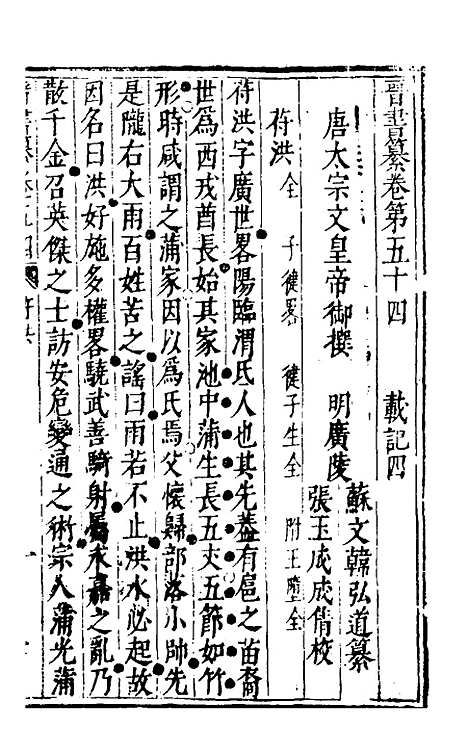 晉書纂卷第五十四　載記四
唐太宗文皇帝御撰　明廣陵
蘇文韓弘道纂
張玉成成倩校
苻洪全　子健畧　健子生全　附王墮全
苻洪字廣世畧陽臨渭氐人也其先葢有扈之苗裔
世爲西戎酋長始其家池中蒲生長五丈五節如竹
形時咸謂之蒲家因以爲氏焉父懷歸部落小帥先
是隴右大雨百姓苦之謠曰雨若不止洪水必起故
因名曰洪好施多權畧驍武善騎射屬永嘉之亂乃
散千金召英傑之士訪安危變通之術宗人蒲光蒲